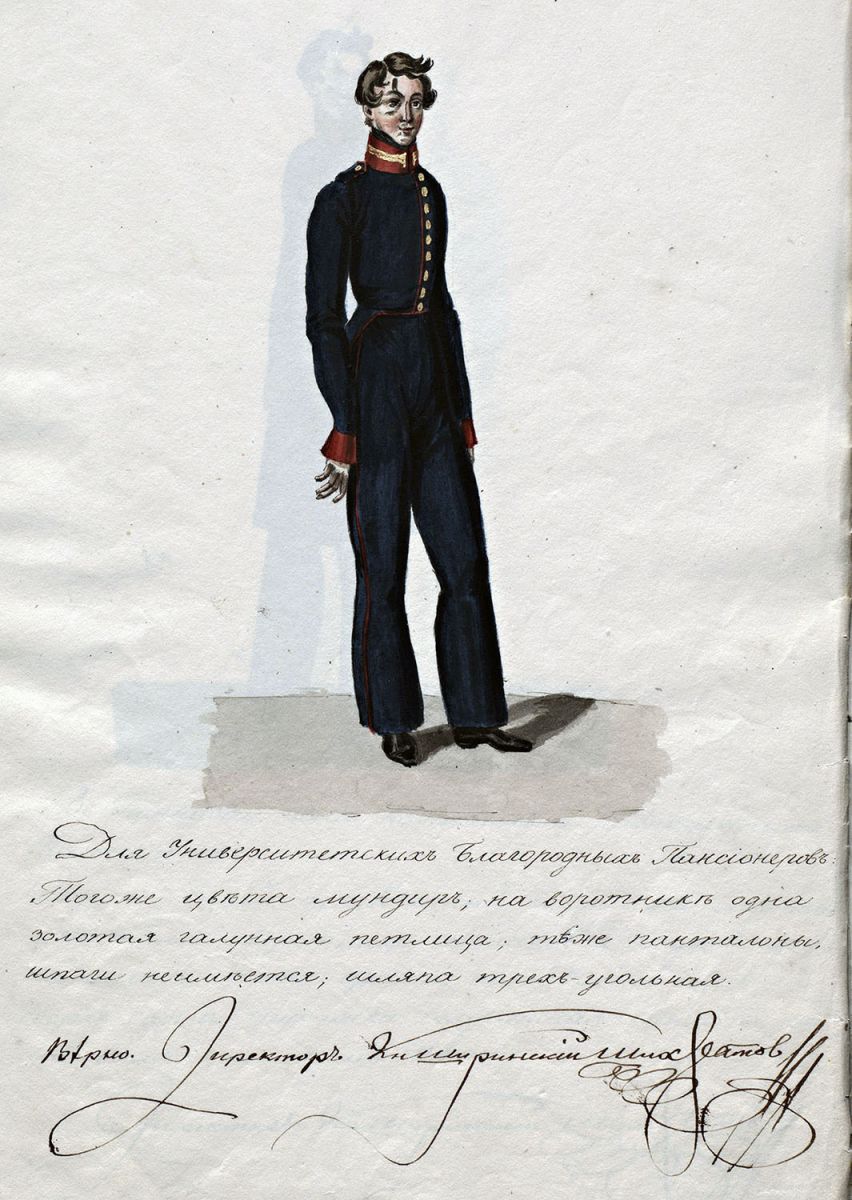 Для Университетскихъ Благородныхъ Пансіонеровъ:
Тогоже цвѣта мундиръ, на воротникѣ одна
золотая галунная петлица; тѣже панталоны,
шпаги неимѣется; шляпа трехъ-угольная.
Вѣрно. Директоръ Кн. Ширинскій Шихматовъ